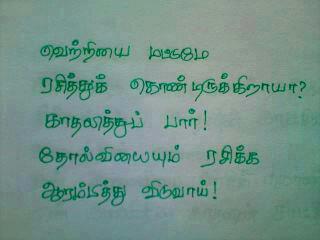 வெற்றியை மட்டுமே
ரசித்துக் கொண்டிருக்கிறாயா?
காதலித்துப் பார்!
தோல்வியையும் ரசிக்க
ஆரம்பித்து விடுவாய்!